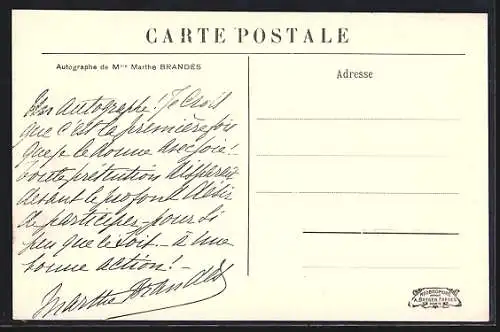 CARTE POSTALE
Autographe de Mlle Marthe BRANDÈS
Adresse
Mon autographe! Je crois
que c'est la première fois
que je le donne avec joie!
toute prétention disparait
devant le profond désir
de participer - pour si
peu que ce soit - à une
bonne action! -
Marthe Brandès